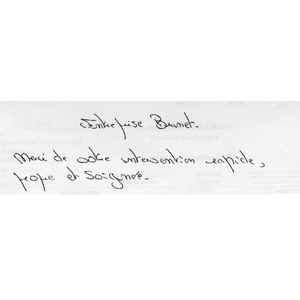 Entreprise Brunet.
Merci de votre intervention rapide,
propre et soignée.